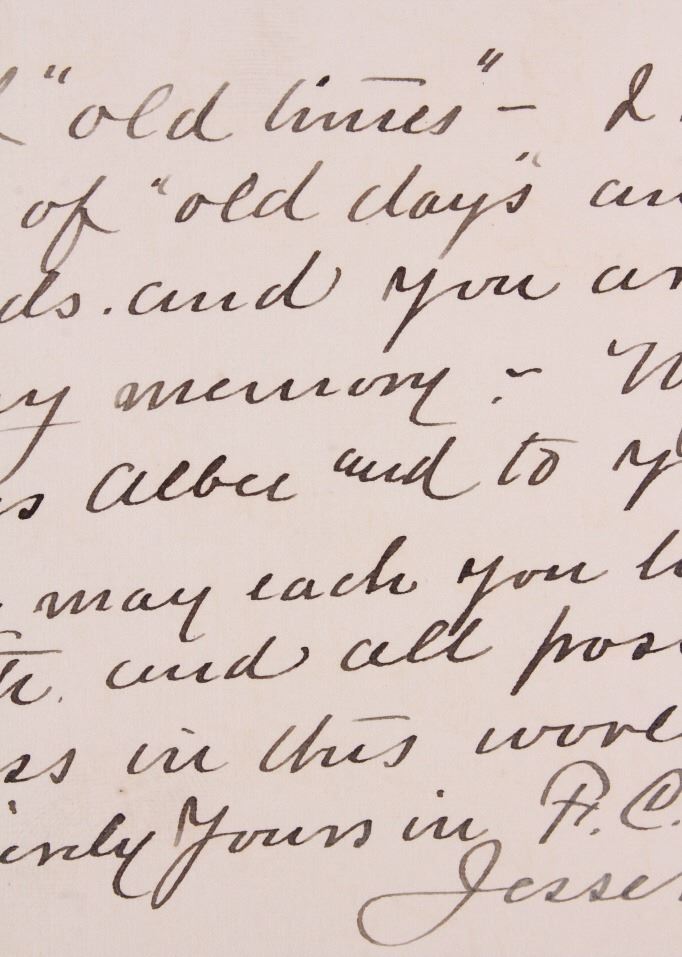 "old times" - I
of "old days" an
ds. and you ar
y memory :-
s Albee and to y
may each you li
th. and all poss
ss in this worl
erely Yours in F. C.
Jesse